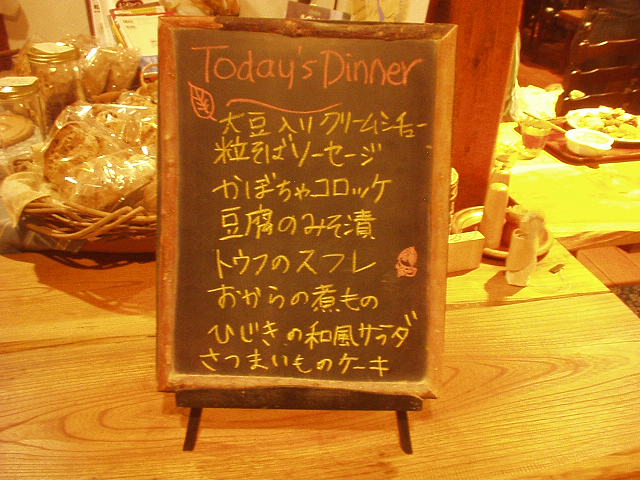 Today's Dinner
大豆入りクリームシチュー
粒そばソーセージ
かぼちゃコロッケ
豆腐のみそ漬
トウフのスフレ
おからの煮もの
ひじきの和風サラダ
さつまいものケーキ